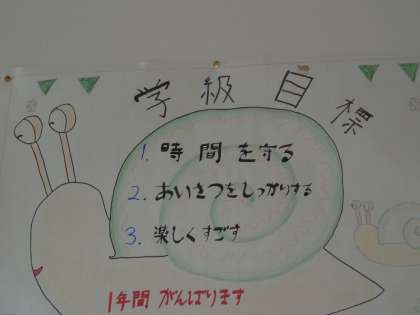 学級目標
1. 時間を守る
2. あいさつをしっかりする
3. 楽しくすごす
1年間 がんばります